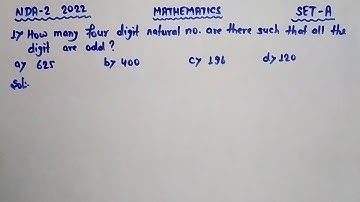 NDA-2 2022 MATHEMATICS SET-A
1) How many four digit natural no. are there such that all the
digit are odd?
a) 625 b) 400 c) 196 d) 120
Sol: